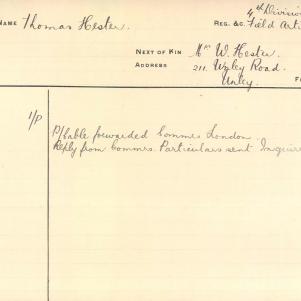 NAME Thomas Hester.
4th Division
REG. &C. Field Arti
NEXT OF KIN Mr W. Hester.
ADDRESS 211. Wyley Road.
Unley.
F
1/P
P/Cable forwarded Commrs London.
Reply from Commrs. Particulars sent Inquire